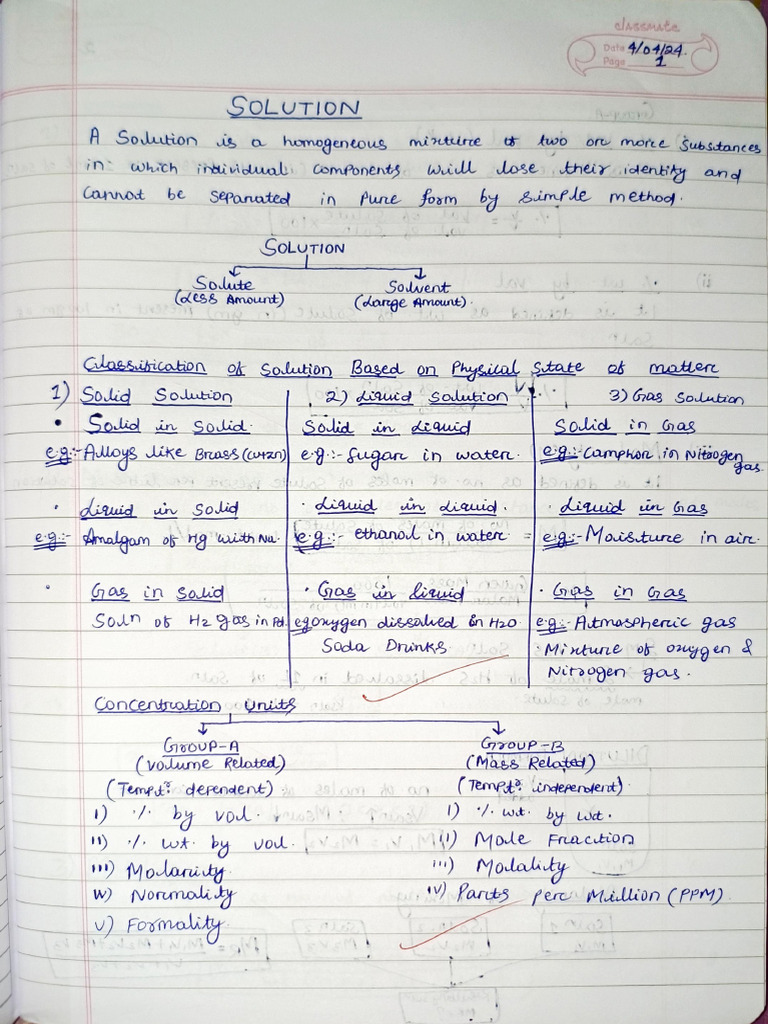 classmate
Date 4/04/24.
Page 1
SOLUTION
A Solution is a homogeneous mixture of two or more substances
in which individual components will lose their identity and
cannot be separated in pure form by simple method.
SOLUTION
Solute
Solvent
(Less Amount)
(Large Amount).
Classification of Solution Based on Physical State of matter
1) Solid Solution
• Solid in Solid.
e.g:- Alloys like Brass (Cu+Zn)
• Liquid in Solid
e.g:- Amalgam of Hg with Na.
• Gas in Solid
Soln of H2 gas in Pd.
2) Liquid Solution
Solid in Liquid
e.g:- Sugar in water.
· Liquid in Liquid.
e.g:- ethanol in water
· Gas in liquid
eg oxygen dissolved in H2O
Soda Drinks
3) Gas Solution
Solid in Gas
e.g:- Camphor in Nitrogen
gas.
· Liquid in Gas
e.g:- Moisture in air.
· Gas in Gas
e.g:- Atmospheric gas
· Mixture of oxygen &
Nitrogen gas.
Concentration Units
GROUP-A
(Volume Related)
(Temptr. dependent)
I) % by vol.
II) % wt. by vol.
III) Molarity
IV) Normality
V) Formality
GROUP-B
(Mass Related)
(Temptr. independent)
I) % wt. by wt.
II) Mole Fraction
III) Molality
IV) Parts per Million (PPM)